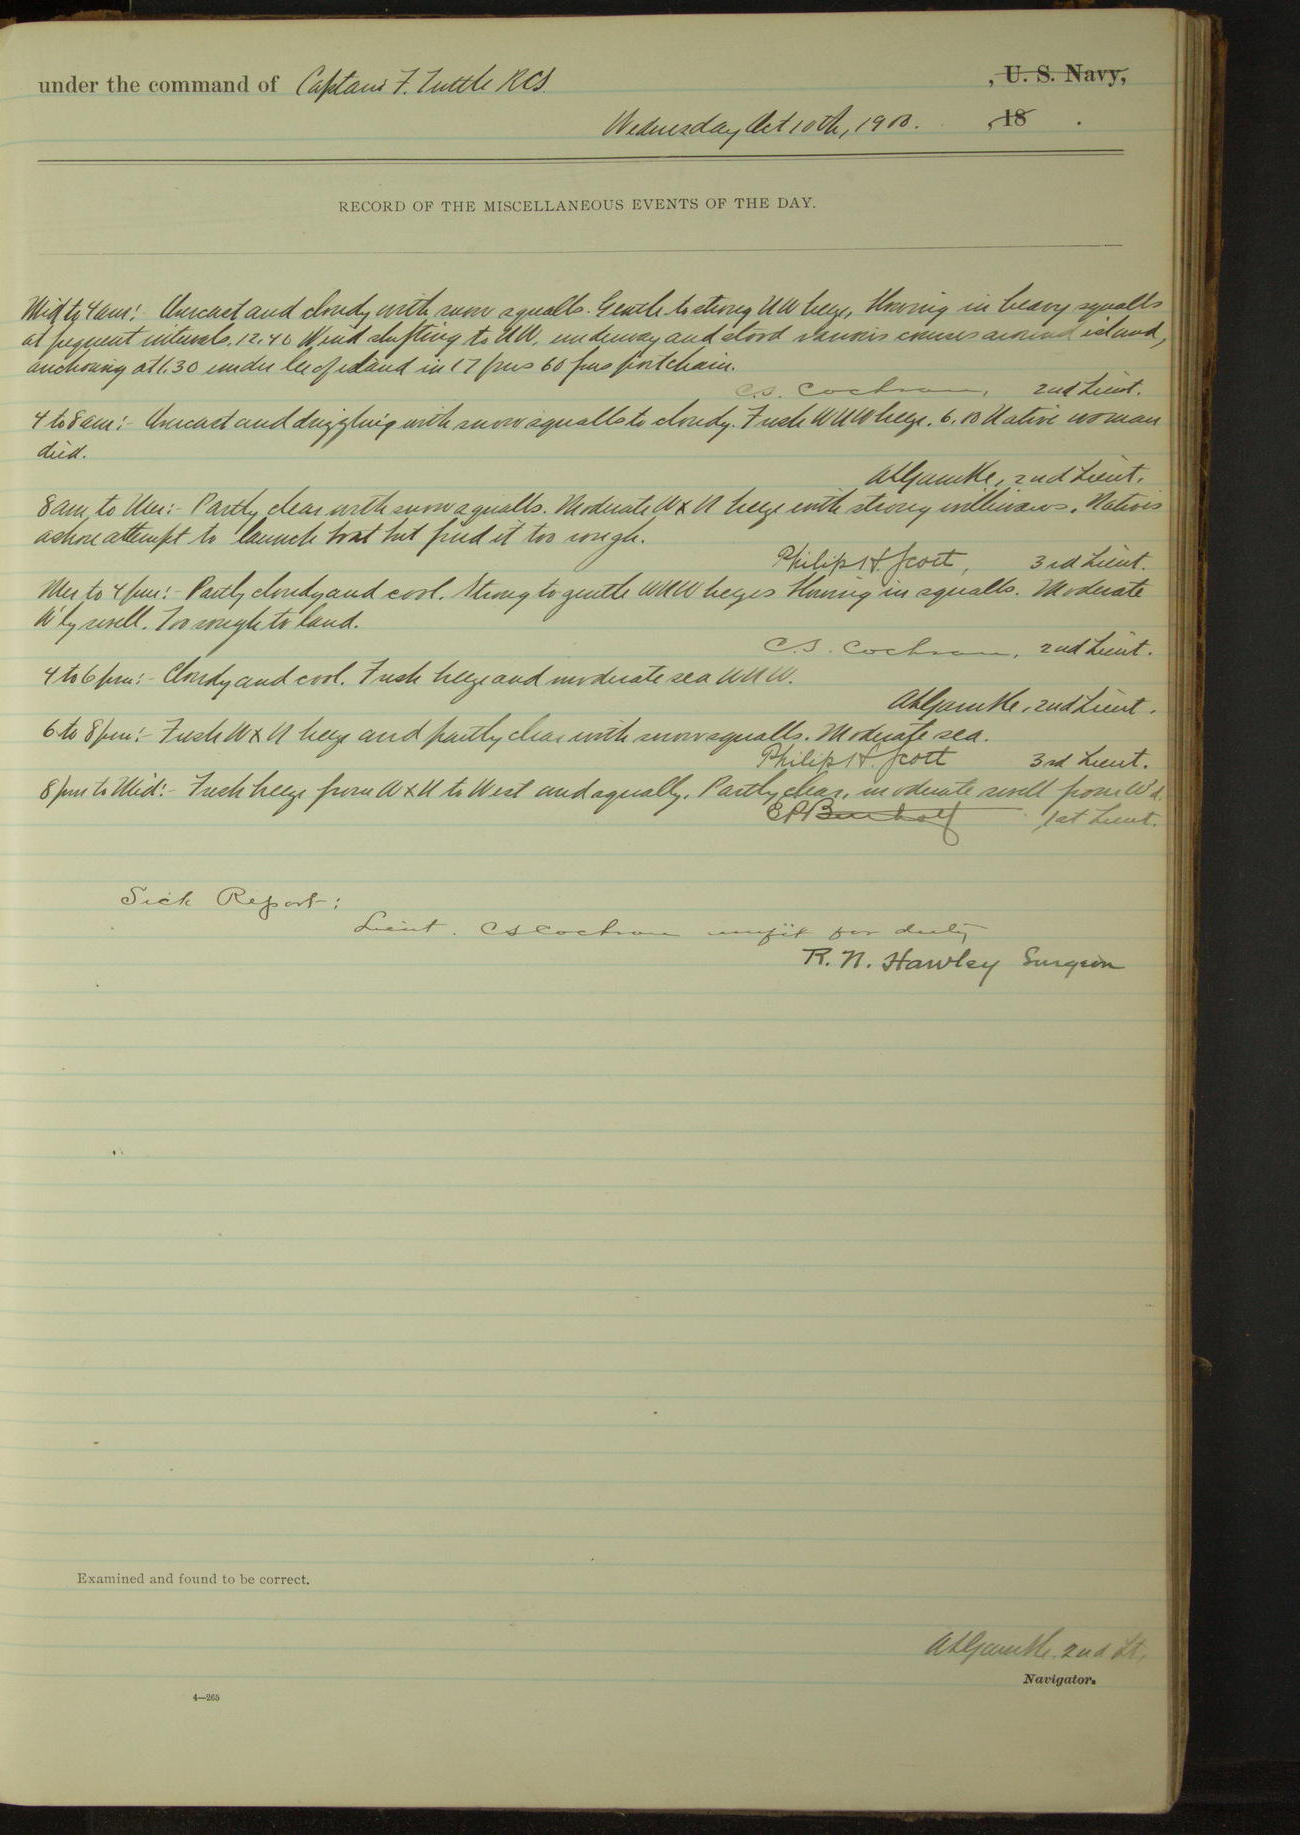 under the command of Captain F. Tuttle RCS. , U. S. Navy,
Wednesday Oct 10th, 1900. , 18 .
RECORD OF THE MISCELLANEOUS EVENTS OF THE DAY.
Mid to 4 am:- Overcast and cloudy with snow squalls. Gentle to strong NW breeze, blowing in heavy squalls
at frequent intervals. 12.40 Wind shifting to NW, underway and stood various courses around island,
anchoring at 1.30 under lee of island in 17 fms 60 fms port chain.
C.S. Cochran, 2nd Lieut.
4 to 8 am:- Overcast and drizzling with snow squalls to cloudy. Fresh WNW breeze. 6.00 Native woman
died.
AHGamble, 2nd Lieut.
8 am to Mer:- Partly clear with snow squalls. Moderate WxN breeze with strong williwaws. Natives
ashore attempt to launch boat but find it too rough.
Philip H. Scott, 3rd Lieut.
Mer to 4 pm:- Partly cloudy and cool. Strong to gentle WNW breezes blowing in squalls. Moderate
W'ly swell. Too rough to land.
C.S. Cochran, 2nd Lieut.
4 to 6 pm:- Cloudy and cool. Fresh breeze and moderate sea WNW.
AHGamble, 2nd Lieut.
6 to 8 pm:- Fresh WxN breeze and partly clear with snow squalls. Moderate sea.
Philip H. Scott 3rd Lieut.
8 pm to Mid:- Fresh breeze from WxN to West and squally. Partly clear, moderate swell from W'd.
EPBertholf 1st Lieut.
Sick Report:
Lieut. CS Cochran unfit for duty
R. N. Hawley Surgeon
Examined and found to be correct.
AHGamble. 2nd Lt.
Navigator.
4—265